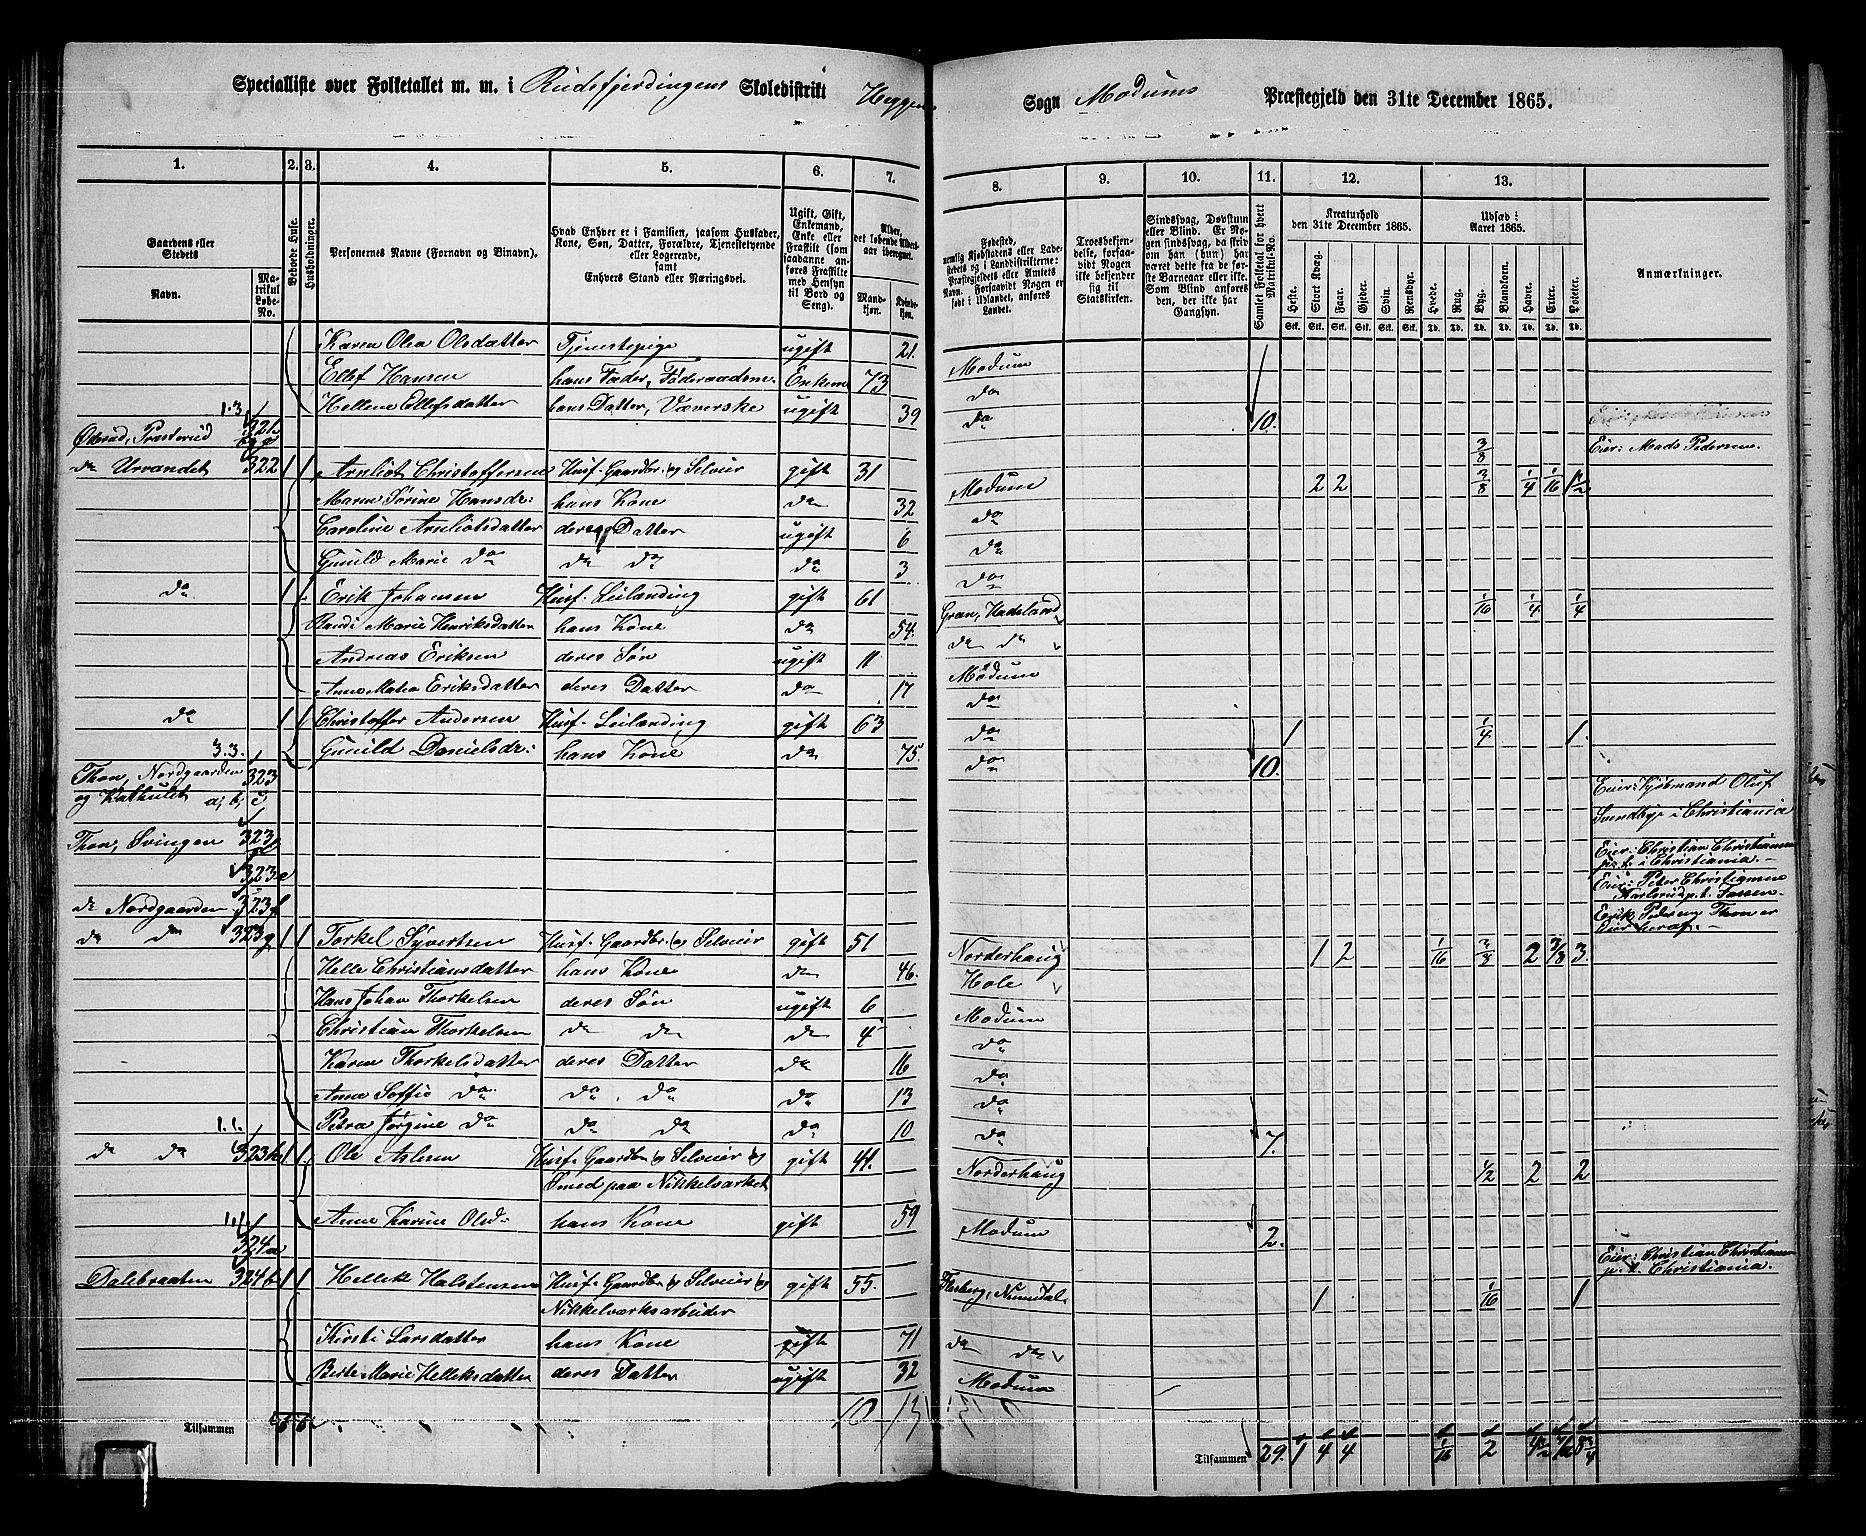 Specialliste over Folketallet m. m. i Rudsfjerdingens Skoledistrikt Heggens Sogn Modums Præstegjeld den 31te December 1865.
1. 2. 3. 4. 5. 6. 7. 8. 9. 10. 11. 12. 13.
Gaardens eller Stedets
Navn.
Matrikul Løbe-No.
Beboede Huse.
Husholdninger.
Personernes Navne (Fornavn og Binavn).
Hvad Enhver er i Familien, saasom Husfader, Kone, Søn, Datter, Forældre, Tjenestetyende eller Logerende, samt Enhvers Stand eller Næringsvei.
Ugift, Gift, Enkemand, Enke eller Fraskilt (som saadanne anføres Fraskilte med Hensyn til Bord og Seng).
Alder, det løbende Alders-aar iberegnet.
Mandkjøn.
Kvindekjøn.
Fødested,
Troesbekjendelse, forsaavidt Nogen ikke bekjender sig til Statskirken.
Sindssvag, Døvstum eller Blind. Er Nogen sindssvag, da skriv om han (hun) har været dette fra de første Barneaar eller ikke. Som Blind anføres den, der ikke har Gangsyn.
Samlet Folketal for hvert Matrikul-No.
Kreaturhold den 31te December 1865.
Heste. Stort Kvæg. Faar. Gjeder. Svin. Rensdyr.
Udsæd i Aaret 1865.
Hvede. Rug. Byg. Blandkorn. Havre. Erter. Poteter.
Anmærkninger.
Karen Olea Olsdatter Tjenestepige ugift 21. Modum
Ellef Hansen hans Fader, Føderaadsm. Enkem 73 do
1.3 Hellene Ellefsdatter hans Datter, Væverske ugift 39 do 10.
321 3/8 Eier: Mads Pedersen.
do Urvandet 322 1 1 Arnliot Christoffersen Husf. Gaardbr. og Selveier gift 31 Modum 2 2 3/8 1/4 1/16 1 1/2
Maren Sørine Hansdr: hans Kone do 32 do
Caroline Arnliotsdatter deres Datter ugift 6 do
Gunild Marie do do do do 3 do
do 1 1 Erik Johansen Husf. Leilænding gift 61 Gran, Hadeland 1/16 1/4 1/4
Randi Marie Henriksdatter hans Kone do 54. do do
Andreas Eriksen deres Søn ugift 11 Modum
Anne Matea Eriksdatter deres Datter do 17 do
do 1 1 Christoffer Andersen Husf. Leilænding gift 63 do 1 1/4 1.
3.3. Gunild Danielsdr: hans Kone do 75. do 10.
Thon, Nordgaarden 323
a; b; c Eier: Kjøbmand Oluf
Svendbye i Christiania
Thon, Svingen 323
Eier: Christian Christiansen
p. t. i Christiania.
323 e Eier: Peter Christiansen
do Nordgaarden 323 f Erik Pedersen Thon er
Eier heraf.
do do 323 g 1 1 Torkel Syvertsen Husf. Gaardbr. og Selveier gift 51 Norderhaug 1 2 1/16 3/8 2 3/8 3.
Helle Christiansdatter hans Kone do 46. Hole
Hans Johan Thorkelsen deres Søn ugift 6 Modum
Christian Thorkelsen do do do 4 do
Karen Thorkelsdatter deres Datter do 16 do
Anne Soffie do do do do 13 do
1.1. Petra Jørgine do do do do 10 do 7.
do do 323 h 1 1 Ole Aslesen Husf. Gaardbr. og Selveier og gift 41. Norderhaug 1/2 2 2
Smed paa Nikkelværket
1.1. Anne Karine Olsd. hans Kone gift 59 Modum 2.
324 a Eier: Christian Christiansen
p. t. Christiania.
Dalebraaten 324 b 1 1 Hellek Halstensen Husf. Gaardbr. og Selveier og gift 55. Flesberg, Numedal 1 1/16 1
Nikkelværksarbeider
Kirsti Larsdatter hans Kone gift 71 do do
Birte Marie Helleksdatter deres Datter ugift 32 Modum
Tilsammen 6 6 10 13
Tilsammen 29. 1 4 4 1/16 2